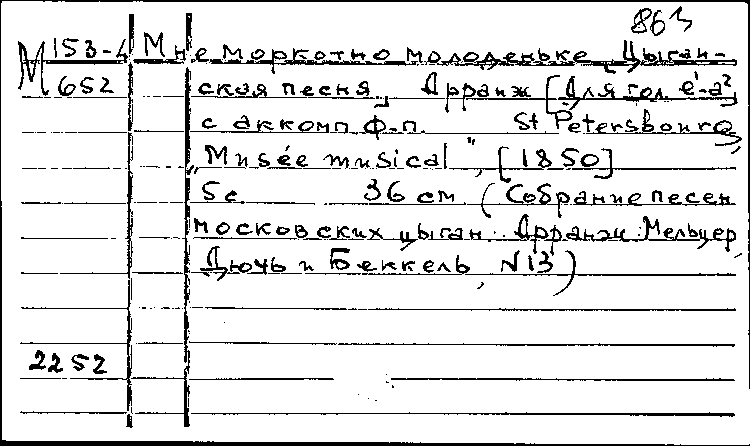 863
М 153-4 Мне моркотно молоденьке. Цыган-
652 ская песня. Арранж. [Для гол. e¹-a²]
с аккомп. ф.-п. St Pétersbourg,
"Musée musical", [1850]
5 с. 36 см (Собрание песен
московских цыган. Арранж. Мельцер,
Дючь и Беккель, N 13)
2252